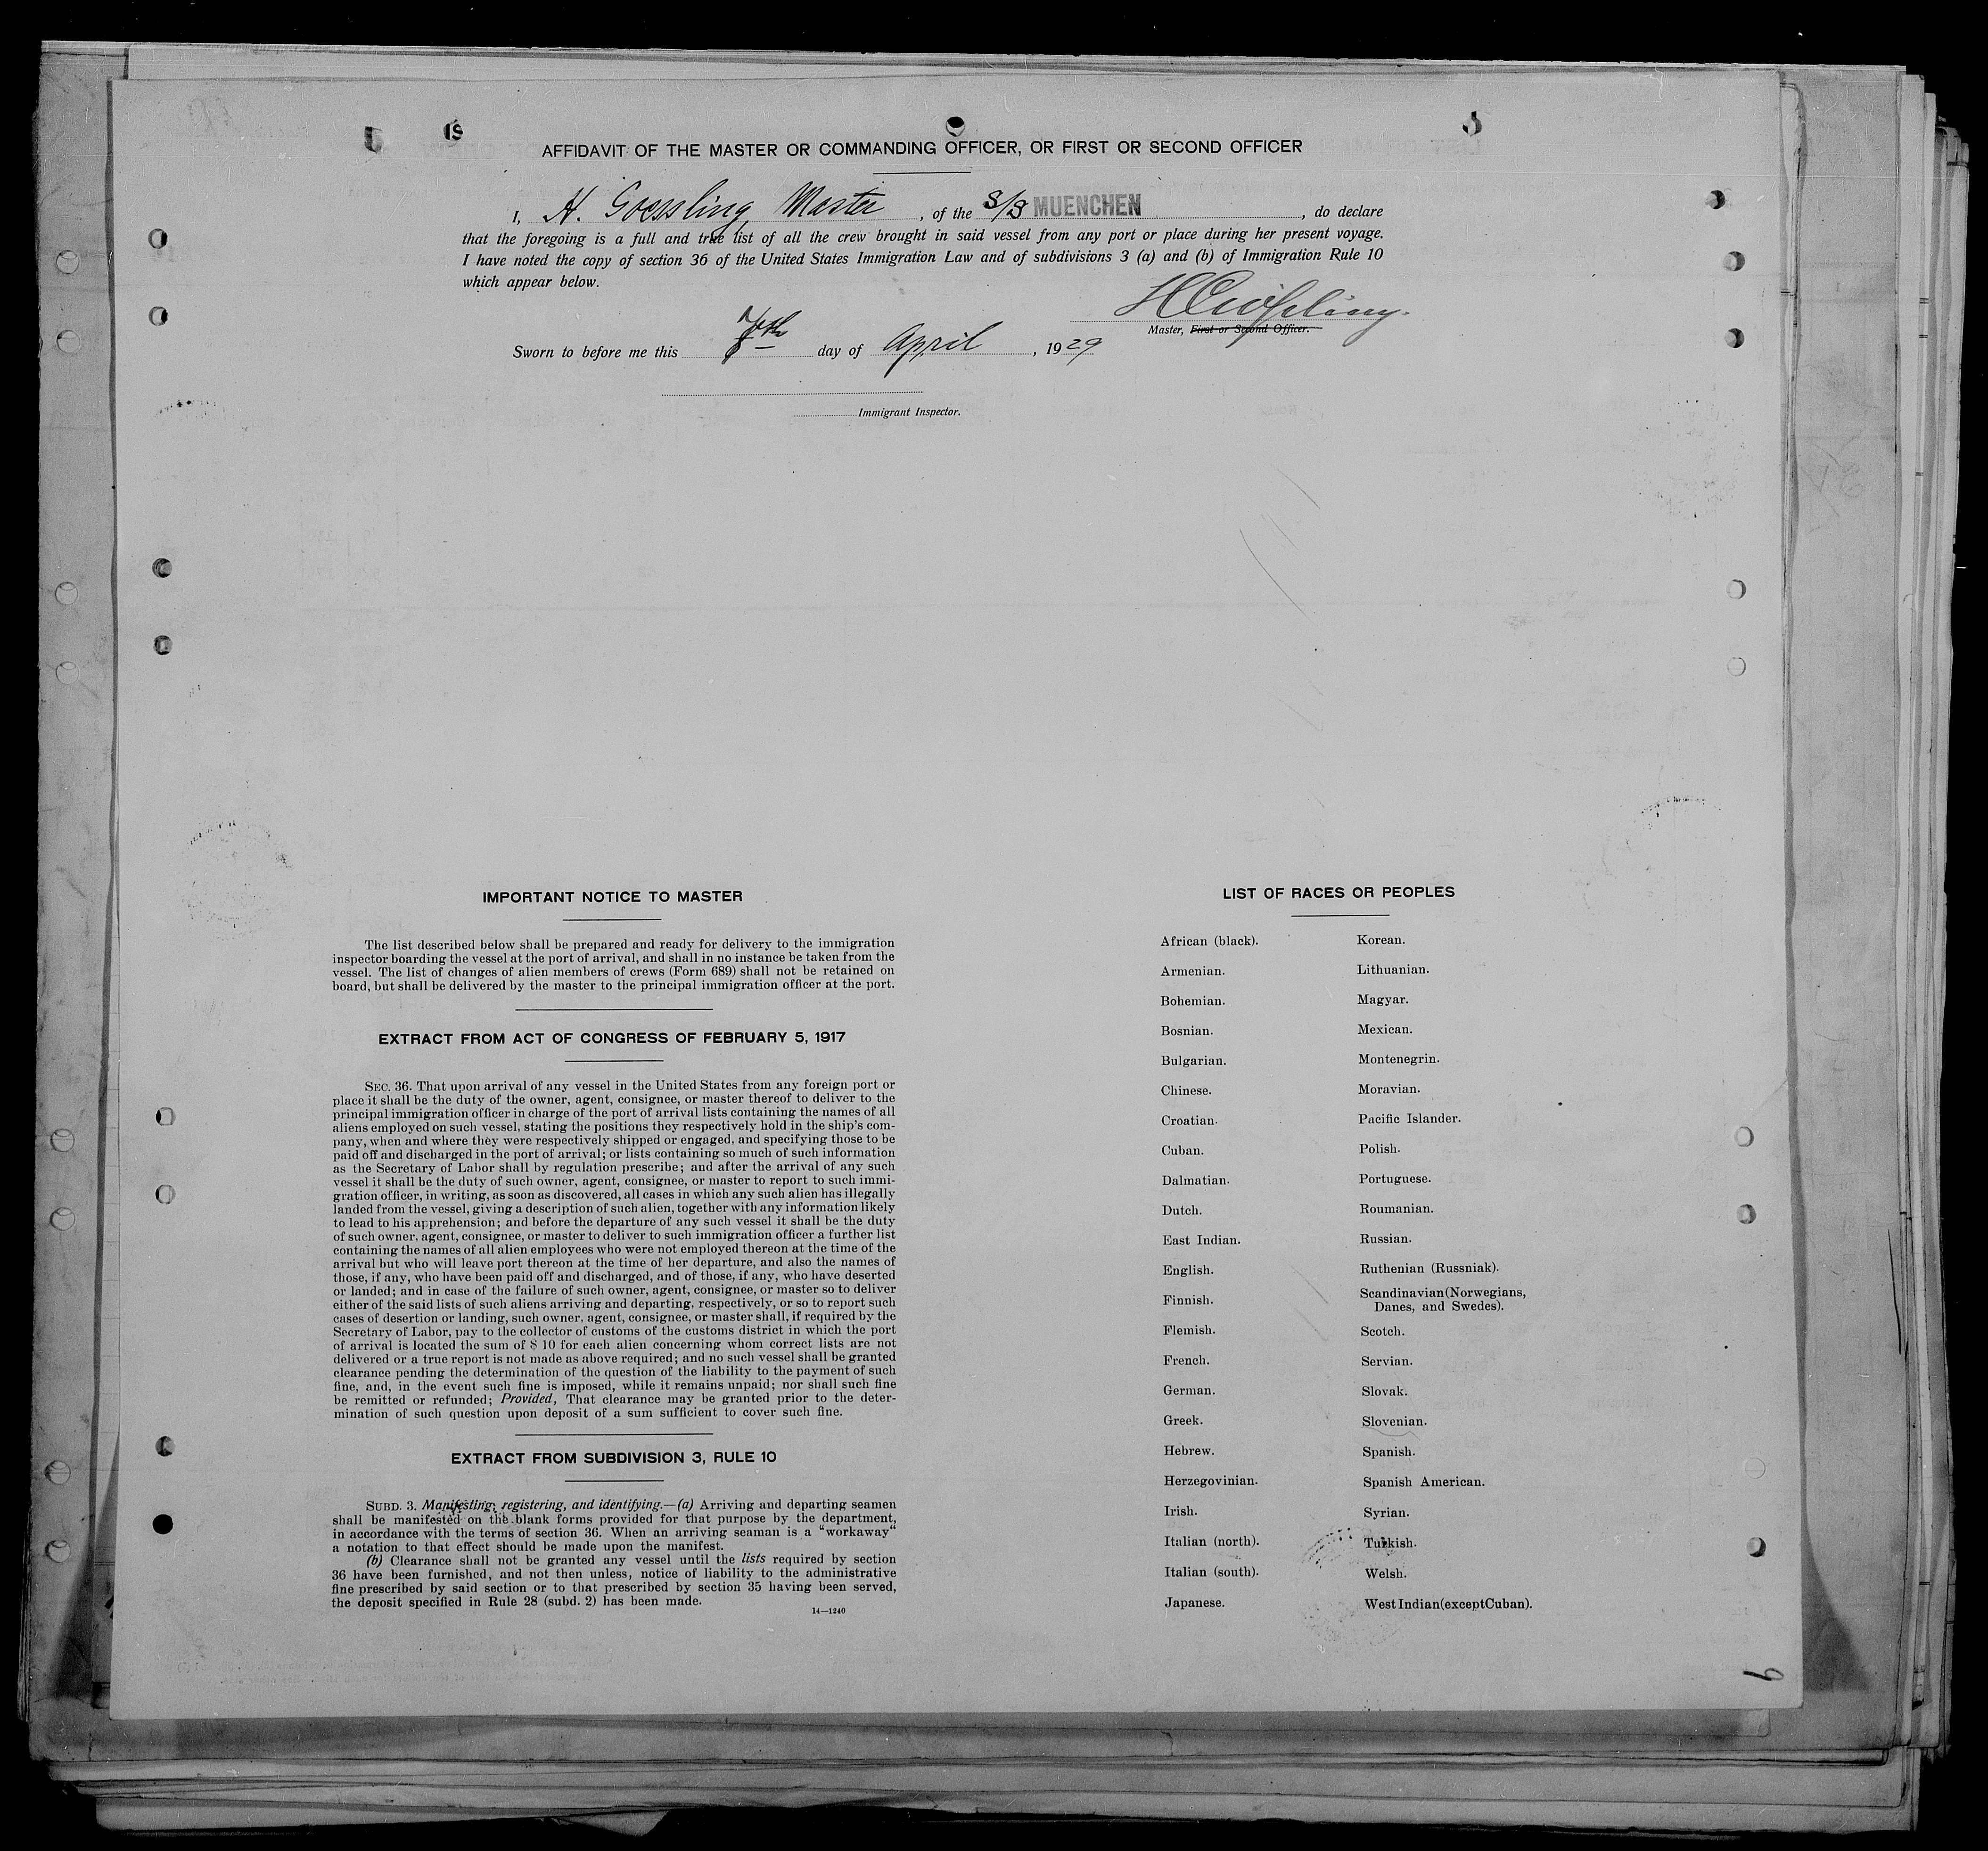 AFFIDAVIT OF THE MASTER OR COMMANDING OFFICER, OR FIRST OR SECOND OFFICER
I, H. Goessling, Master, of the S/S MUENCHEN, do declare
that the foregoing is a full and true list of all the crew brought in said vessel from any port or place during her present voyage.
I have noted the copy of section 36 of the United States Immigration Law and of subdivisions 3 (a) and (b) of Immigration Rule 10
which appear below.
Master, First or Second Officer.
Sworn to before me this 7th day of April, 1929
Immigrant Inspector.
IMPORTANT NOTICE TO MASTER
The list described below shall be prepared and ready for delivery to the immigration
inspector boarding the vessel at the port of arrival, and shall in no instance be taken from the
vessel. The list of changes of alien members of crews (Form 689) shall not be retained on
board, but shall be delivered by the master to the principal immigration officer at the port.
EXTRACT FROM ACT OF CONGRESS OF FEBRUARY 5, 1917
SEC. 36. That upon arrival of any vessel in the United States from any foreign port or
place it shall be the duty of the owner, agent, consignee, or master thereof to deliver to the
principal immigration officer in charge of the port of arrival lists containing the names of all
aliens employed on such vessel, stating the positions they respectively hold in the ship's com-
pany, when and where they were respectively shipped or engaged, and specifying those to be
paid off and discharged in the port of arrival; or lists containing so much of such information
as the Secretary of Labor shall by regulation prescribe; and after the arrival of any such
vessel it shall be the duty of such owner, agent, consignee, or master to report to such immi-
gration officer, in writing, as soon as discovered, all cases in which any such alien has illegally
landed from the vessel, giving a description of such alien, together with any information likely
to lead to his apprehension; and before the departure of any such vessel it shall be the duty
of such owner, agent, consignee, or master to deliver to such immigration officer a further list
containing the names of all alien employees who were not employed thereon at the time of the
arrival but who will leave port thereon at the time of her departure, and also the names of
those, if any, who have been paid off and discharged, and of those, if any, who have deserted
or landed; and in case of the failure of such owner, agent, consignee, or master so to deliver
either of the said lists of such aliens arriving and departing, respectively, or so to report such
cases of desertion or landing, such owner, agent, consignee, or master shall, if required by the
Secretary of Labor, pay to the collector of customs of the customs district in which the port
of arrival is located the sum of $ 10 for each alien concerning whom correct lists are not
delivered or a true report is not made as above required; and no such vessel shall be granted
clearance pending the determination of the question of the liability to the payment of such
fine, and, in the event such fine is imposed, while it remains unpaid; nor shall such fine
be remitted or refunded; Provided, That clearance may be granted prior to the deter-
mination of such question upon deposit of a sum sufficient to cover such fine.
EXTRACT FROM SUBDIVISION 3, RULE 10
SUBD. 3. Manifesting, registering, and identifying.—(a) Arriving and departing seamen
shall be manifested on the blank forms provided for that purpose by the department,
in accordance with the terms of section 36. When an arriving seaman is a "workaway"
a notation to that effect should be made upon the manifest.
(b) Clearance shall not be granted any vessel until the lists required by section
36 have been furnished, and not then unless, notice of liability to the administrative
fine prescribed by said section or to that prescribed by section 35 having been served,
the deposit specified in Rule 28 (subd. 2) has been made.
14—1240
LIST OF RACES OR PEOPLES
African (black).
Armenian.
Bohemian.
Bosnian.
Bulgarian.
Chinese.
Croatian.
Cuban.
Dalmatian.
Dutch.
East Indian.
English.
Finnish.
Flemish.
French.
German.
Greek.
Hebrew.
Herzegovinian.
Irish.
Italian (north).
Italian (south).
Japanese.
Korean.
Lithuanian.
Magyar.
Mexican.
Montenegrin.
Moravian.
Pacific Islander.
Polish.
Portuguese.
Roumanian.
Russian.
Ruthenian (Russniak).
Scandinavian (Norwegians,
Danes, and Swedes).
Scotch.
Servian.
Slovak.
Slovenian.
Spanish.
Spanish American.
Syrian.
Turkish.
Welsh.
West Indian (except Cuban).
9